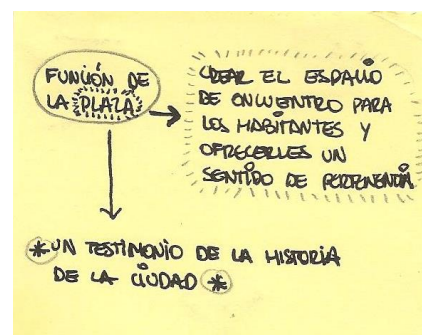 FUNCIÓN DE
LA PLAZA
CREAR EL ESPACIO
DE ENCUENTRO PARA
LOS HABITANTES Y
OFRECERLES UN
SENTIDO DE PERTENENCIA
*UN TESTIMONIO DE LA HISTORIA
DE LA CIUDAD *